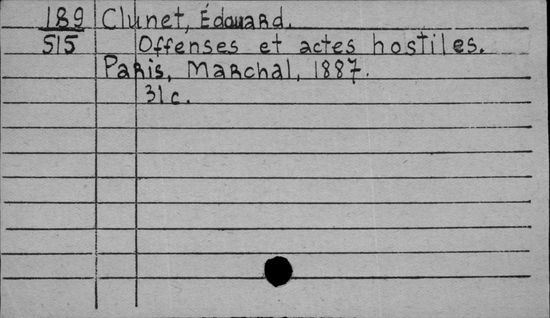 189 Clunet, Édouard.
515 Offenses et actes hostiles.
Paris, Marchal, 1887.
31 c.